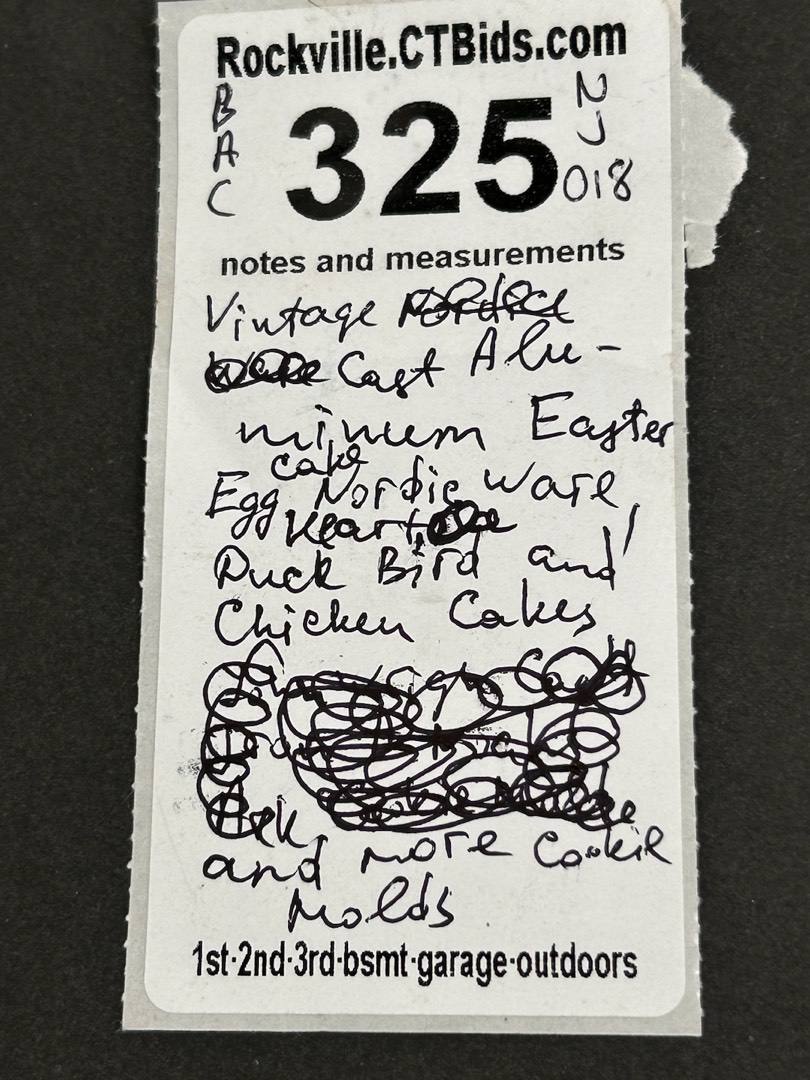 Rockville.CTBids.com
BAC
325
NJ
018
notes and measurements
Vintage
Cast Alu-
minum Easter
cake
Egg Nordic Ware
Heart,
Duck Bird and
Chicken Cakes
and more Cookie
Molds
1st·2nd·3rd·bsmt·garage·outdoors